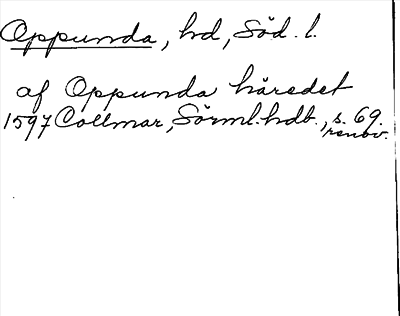 Oppunda, hd, Söd. l.
af Oppunda häredet
1597 Collmar, Sörml. hdb., s. 69.
renov.